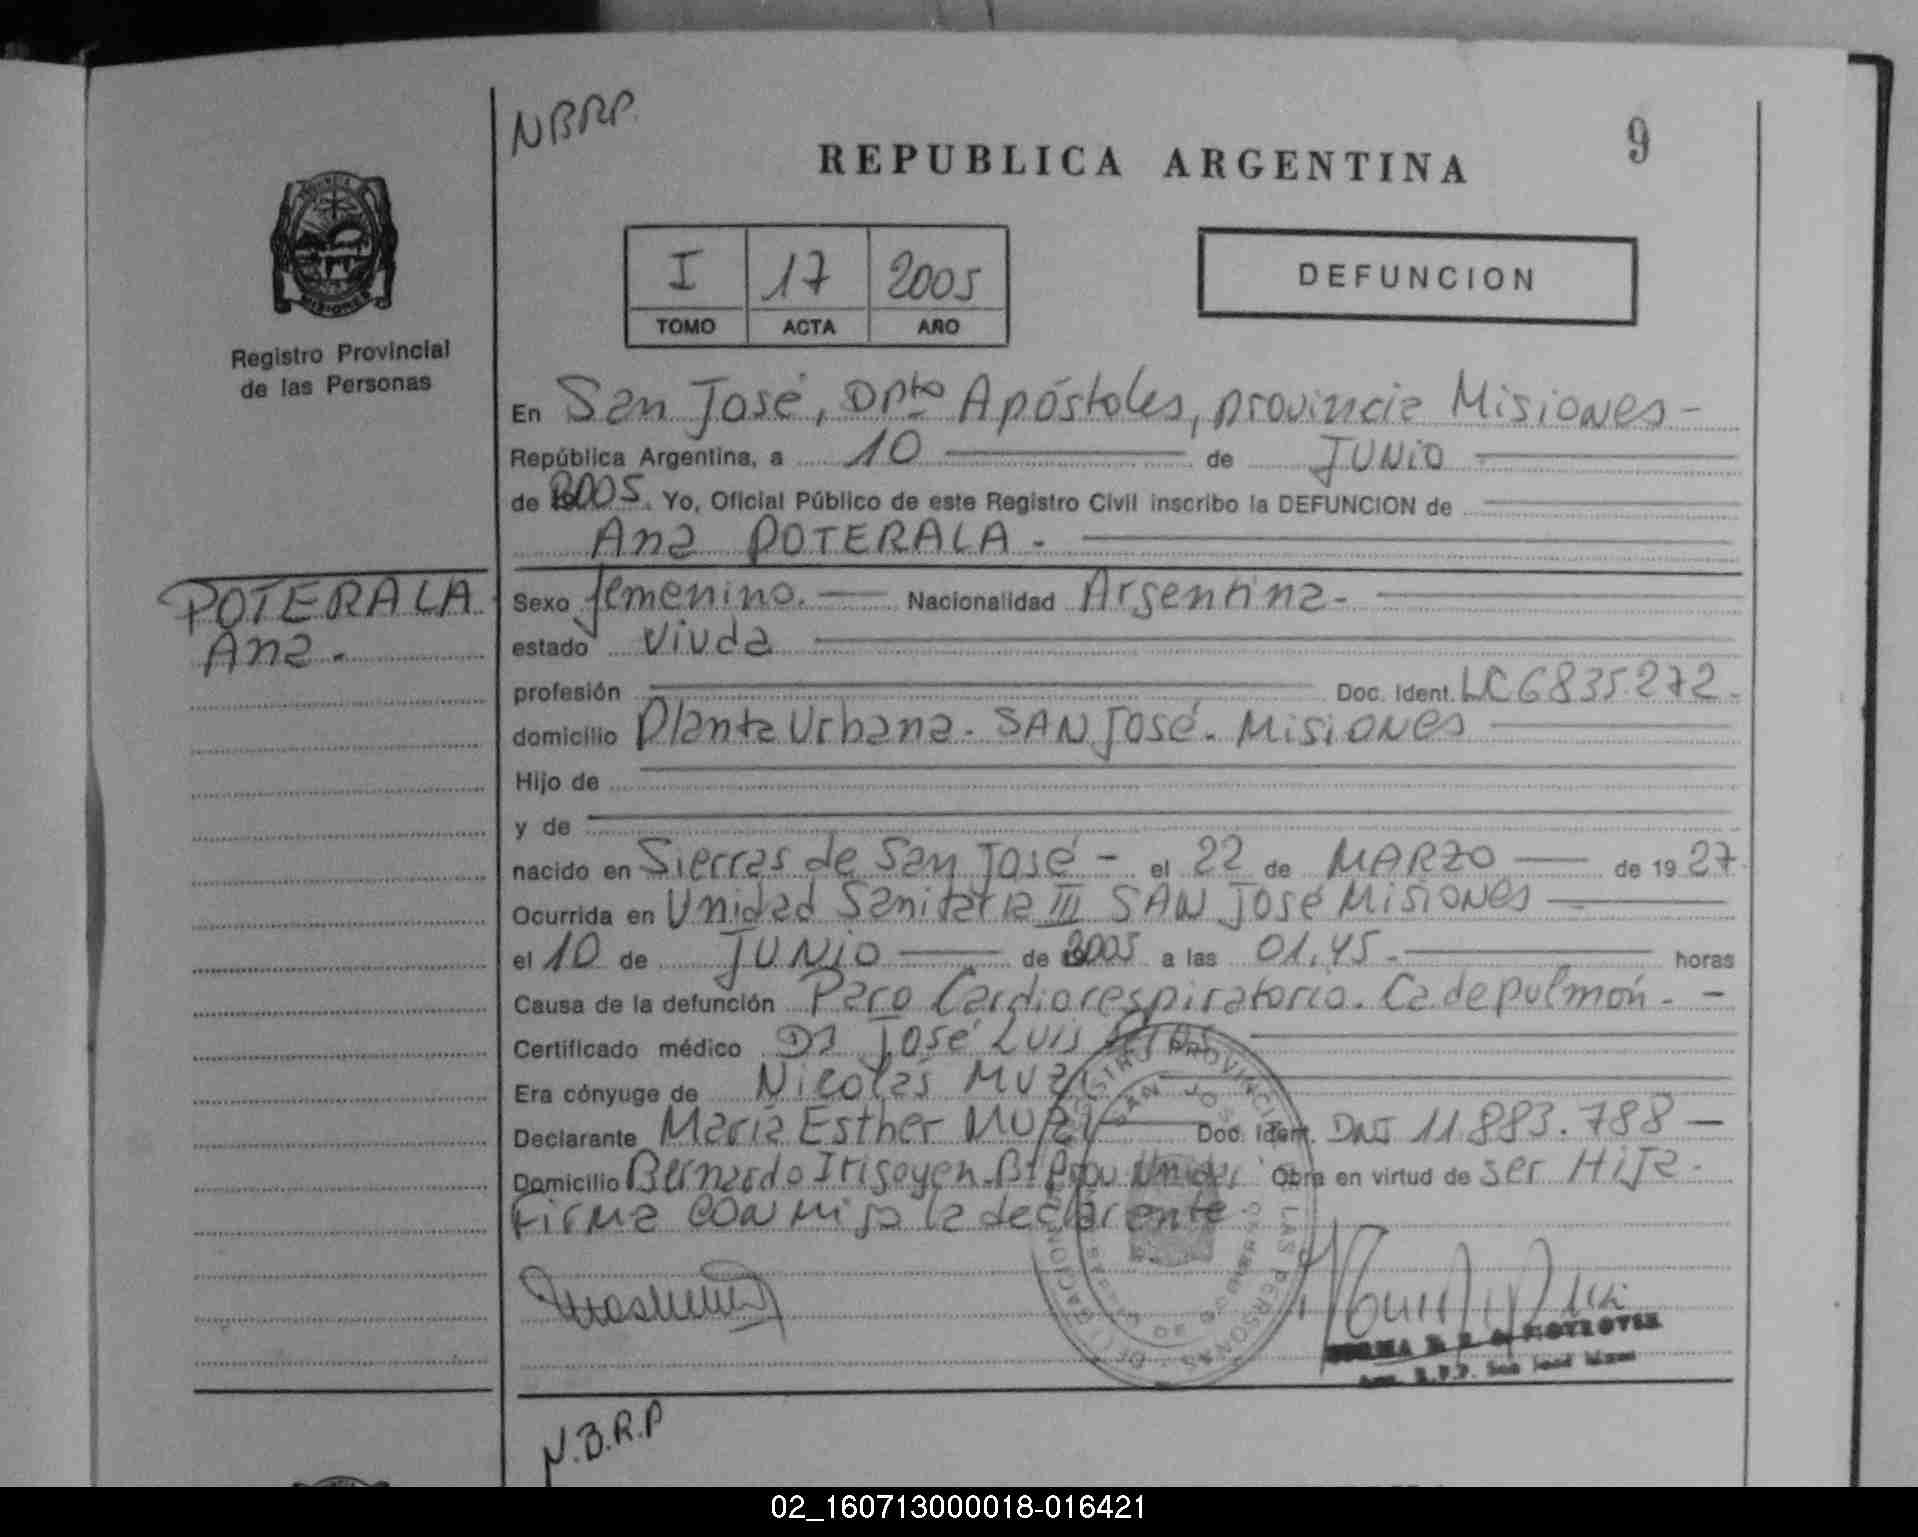 NBRP.
REPUBLICA ARGENTINA
9
I 17 2005
TOMO ACTA AÑO
DEFUNCION
Registro Provincial
de las Personas
En San José, Dpto Apóstoles, provincia Misiones -
República Argentina, a 10 de JUNIO
de 2005. Yo, Oficial Público de este Registro Civil inscribo la DEFUNCION de
Ana POTERALA.
POTERALA
Ana.
Sexo femenino. Nacionalidad Argentina-
estado viuda
profesión Doc. Ident. LC 6835.272.
domicilio Planta Urbana. SAN José. Misiones
Hijo de
y de
nacido en Sierras de San José - el 22 de MARZO de 1927.
Ocurrida en Unidad Sanitaria III SAN José Misiones
el 10 de JUNIO de 2005 a las 01,45.- horas
Causa de la defunción Paro Cardiorespiratorio. Ca de pulmón. -
Certificado médico Dr José Luis
Era cónyuge de Nicolás
Declarante María Esther Doc. Ident. DNI 11.883.788 —
Domicilio Bernardo Irigoyen. Bº Prov Unidas Obra en virtud de ser Hija.
Firma conmigo la declarante
SAN JOSE
LAS PERSONAS
R.P.P. San José
N.B.R.P
02_160713000018-016421